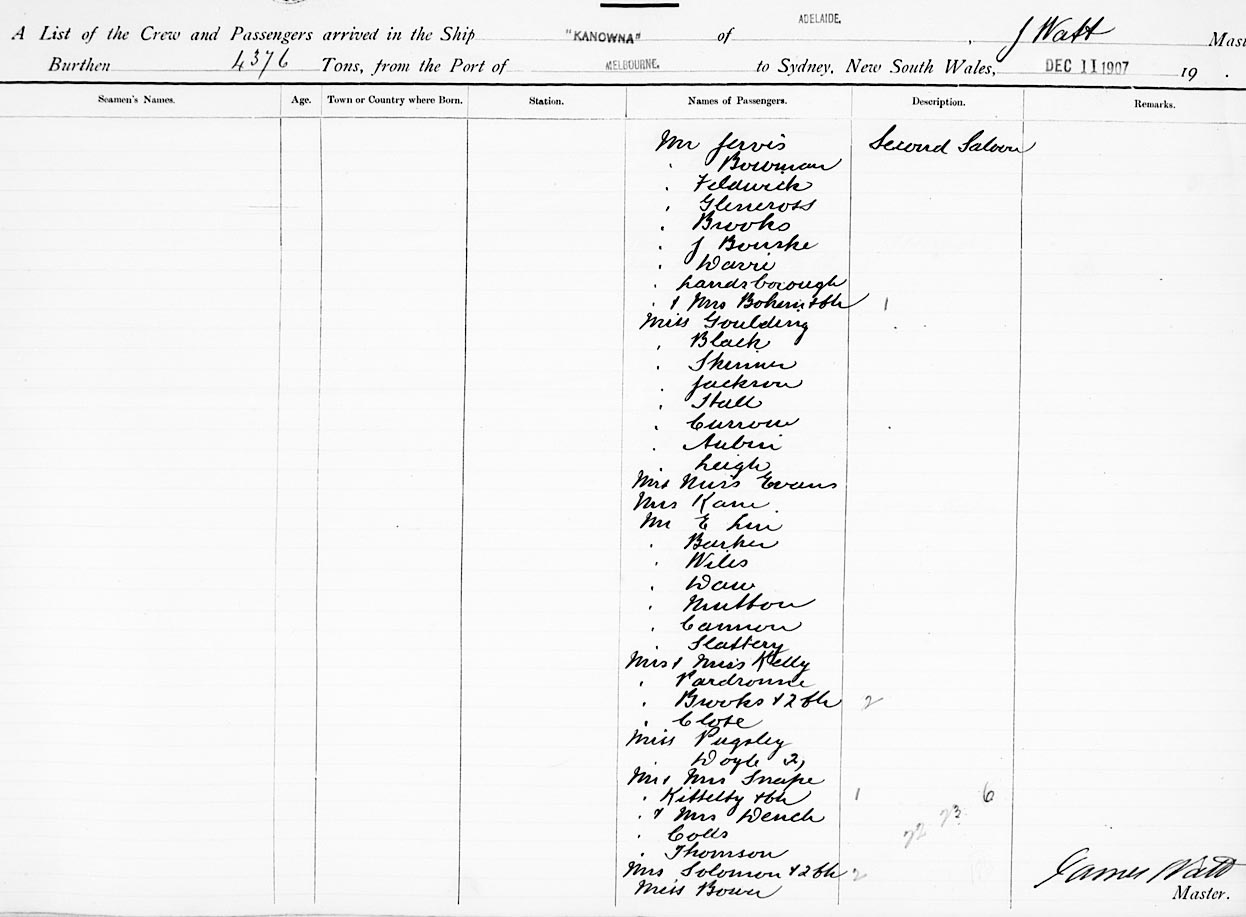 ADELAIDE.
A List of the Crew and Passengers arrived in the Ship "KANOWNA" of , J Watt Mast
Burthen 4376 Tons, from the Port of MELBOURNE. to Sydney, New South Wales, DEC 11 1907 19 .
Seamen's Names. Age. Town or Country where Born. Station. Names of Passengers. Description. Remarks.
Mr Jervis Second Saloon
" Bowman
" Feldwick
" Glencross
" Brooks
" J Bourke
" Davie
" Landsborough
" & Mrs & Ch 1
Miss Goulding
" Black
" Skinner
" Jackson
" Stall
" Currow
" Aubin
" Leigh
Mrs Miss Evans
Mrs Kane
Mr E Lee
" Barker
" Wiles
" Daw
" Mutton
" Cannon
" Slattery
Mrs & Miss Kelly
" Brooks & 2 Ch 2
" Close
Miss Pugsley
" Doyle 2,
Mr & Mrs Snape
" Kittelty & Ch 1 6
" & Mrs Dench 22 23
" Colls
" Thomson
Mrs Solomon & 2 Ch 2
Miss Bower
James Watt
Master.